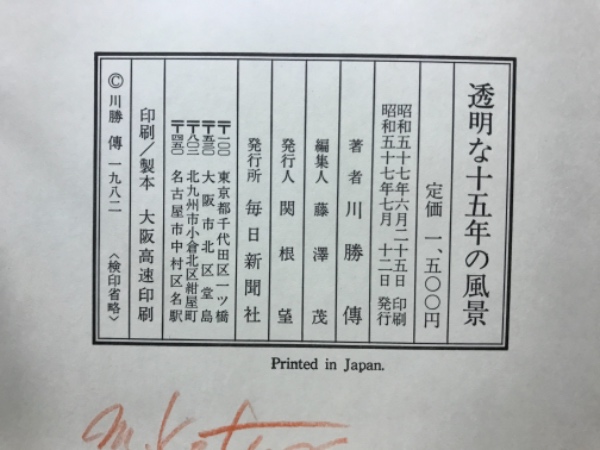 透明な十五年の風景
定価 一、五〇〇円
昭和五十七年六月二十五日 印刷
昭和五十七年七月 十二日 発行
著者 川勝傳
編集人 藤澤茂
発行人 関根望
発行所 毎日新聞社
〒一〇〇 東京都千代田区一ツ橋
〒五三〇 大阪市北区堂島
〒八〇二 北九州市小倉北区紺屋町
〒四五〇 名古屋市中村区名駅
印刷/製本 大阪高速印刷
© 川勝 傳 一九八二 〈検印省略〉
Printed in Japan.